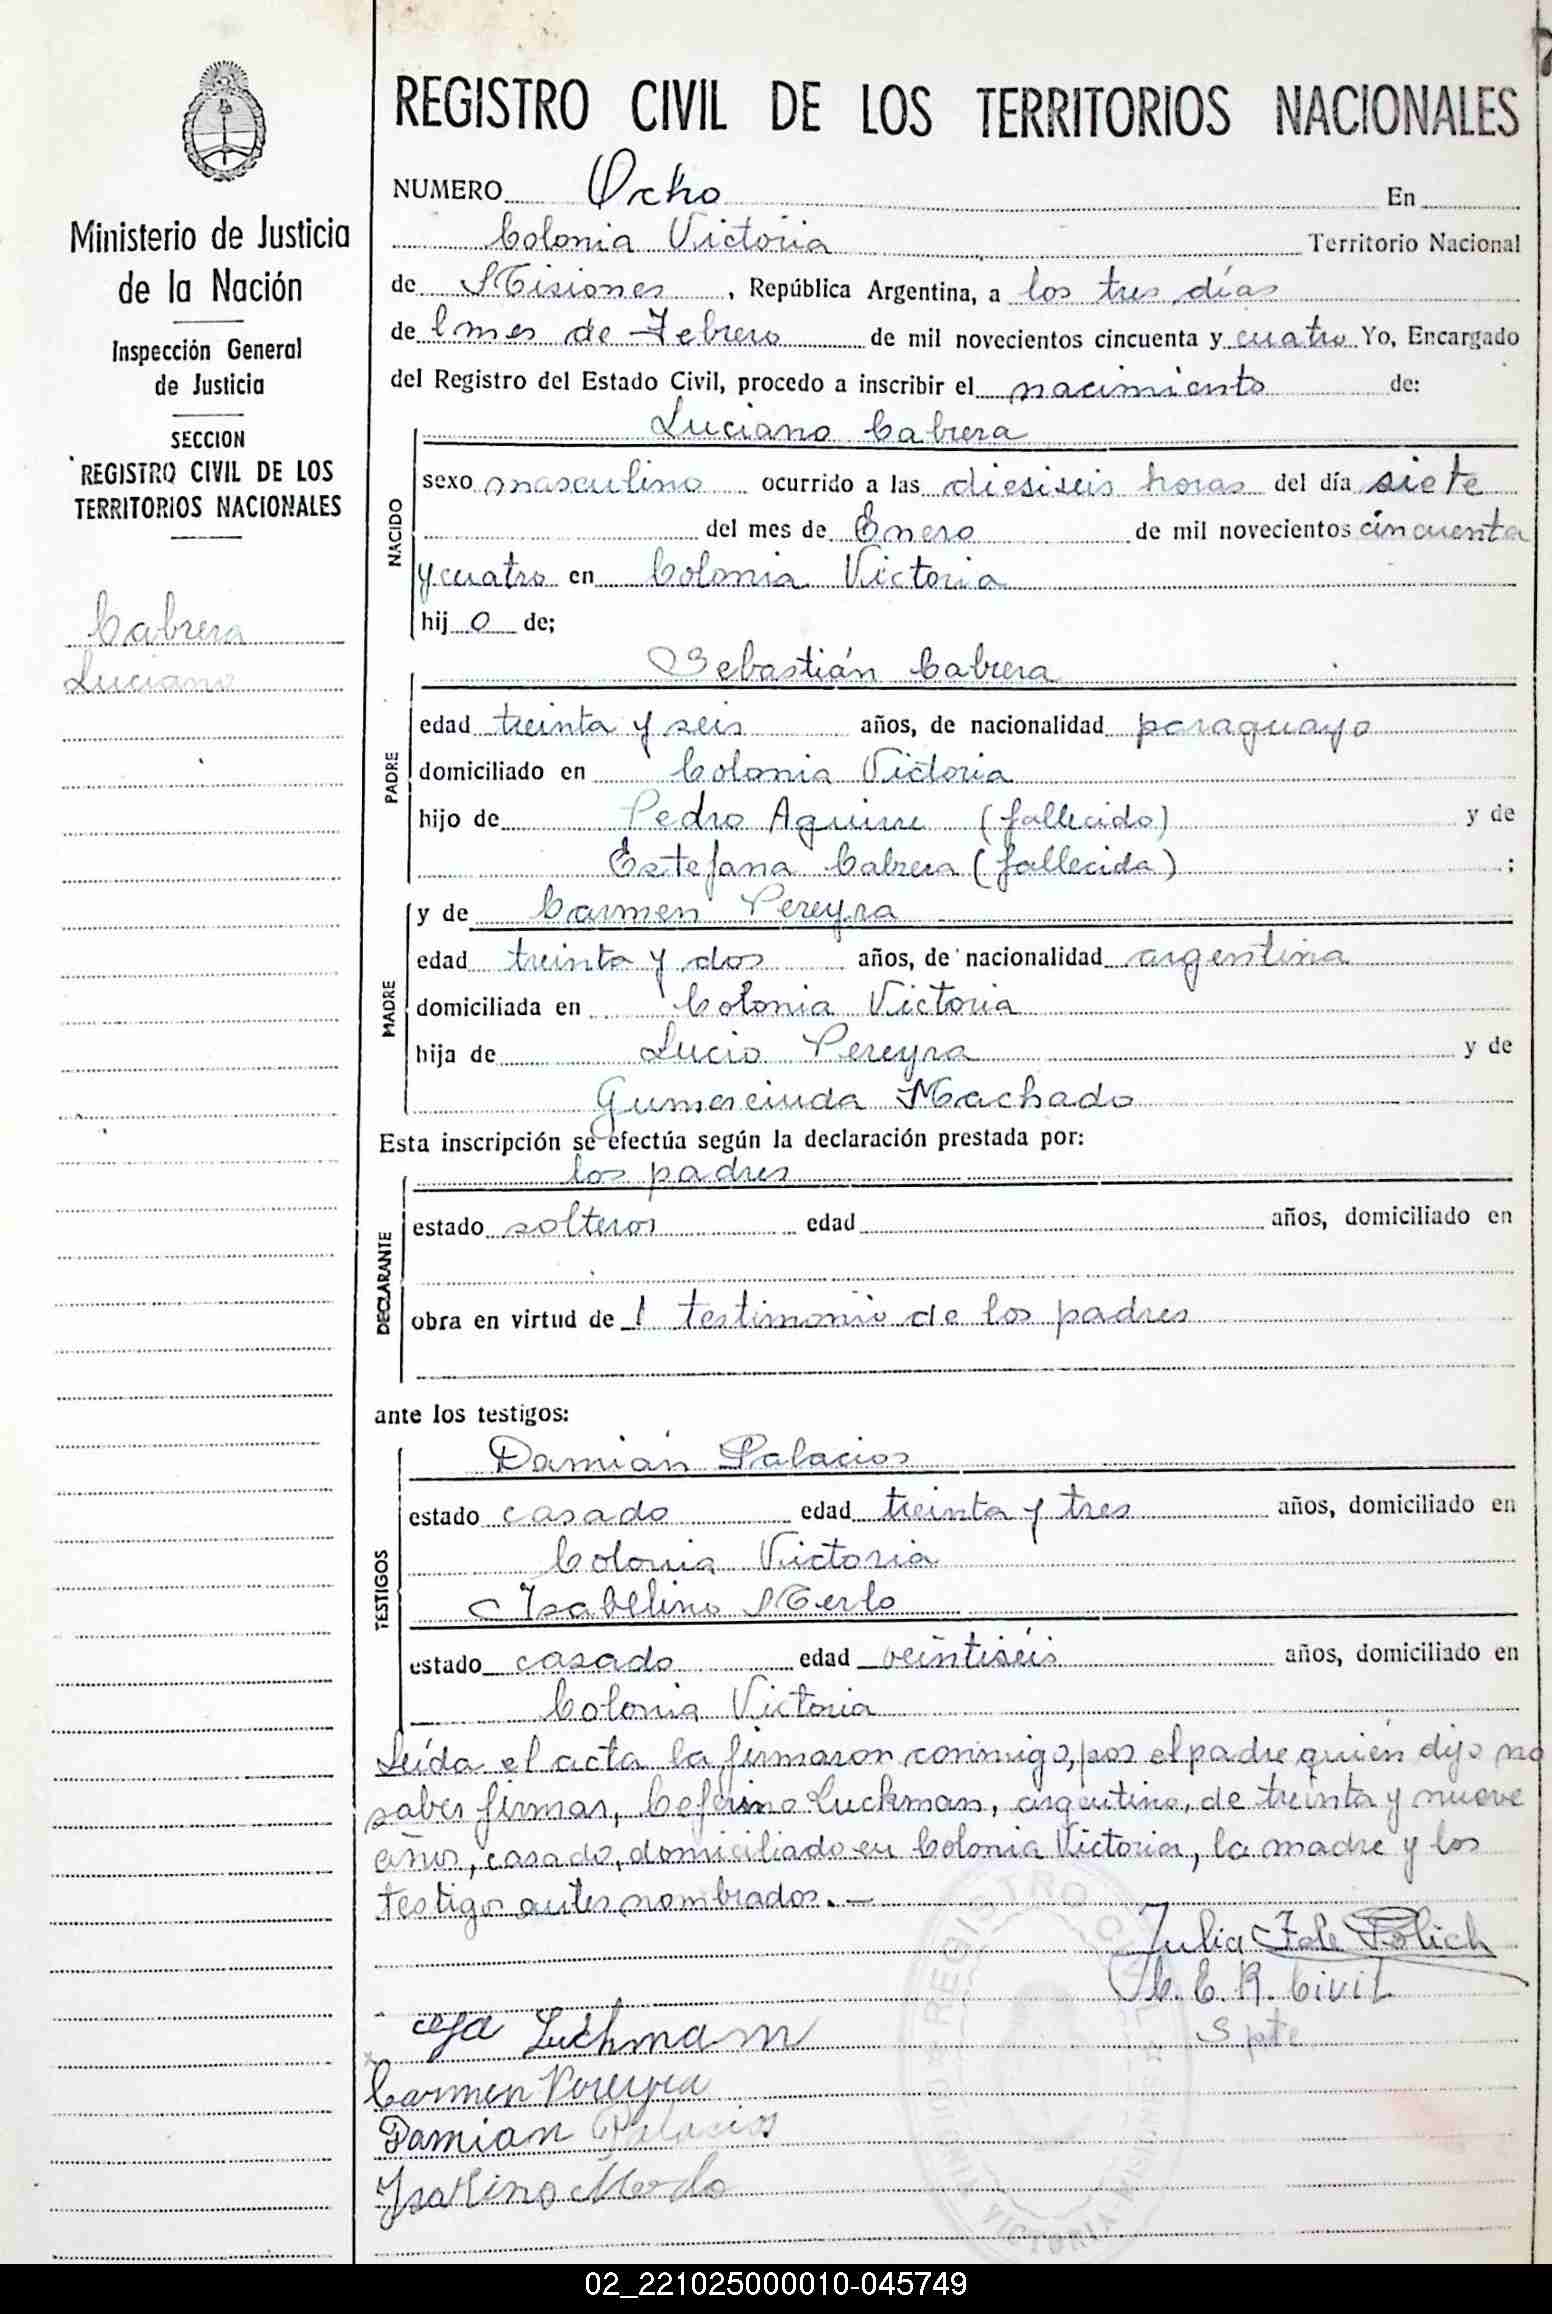 REGISTRO CIVIL DE LOS TERRITORIOS NACIONALES
Ministerio de Justicia
de la Nación
Inspección General
de Justicia
SECCION
REGISTRO CIVIL DE LOS
TERRITORIOS NACIONALES
Cabrera
Luciano
NUMERO Ocho En
Colonia Victoria Territorio Nacional
de Misiones, República Argentina, a los tres días
de l mes de Febrero de mil novecientos cincuenta y cuatro Yo, Encargado
del Registro del Estado Civil, procedo a inscribir el nacimiento de:
NACIDO
Luciano Cabrera
sexo masculino ocurrido a las diesiseis horas del día siete
del mes de Enero de mil novecientos cincuenta
y cuatro en Colonia Victoria
hij o de;
PADRE
Sebastián Cabrera
edad treinta y seis años, de nacionalidad paraguayo
domiciliado en Colonia Victoria
hijo de Pedro Aguirre (fallecido) y de
Estefana Cabrera (fallecida) ;
MADRE
y de Carmen Pereyra
edad treinta y dos años, de nacionalidad argentina
domiciliada en Colonia Victoria
hija de Lucio Pereyra y de
Gumerciuda Machado
Esta inscripción se efectúa según la declaración prestada por:
DECLARANTE
los padres
estado solteros edad años, domiciliado en
obra en virtud de l testimonio de los padres
ante los testigos:
TESTIGOS
Damián Palacios
estado casado edad treinta y tres años, domiciliado en
Colonia Victoria
Isabelino Merlo
estado casado edad veintiseis años, domiciliado en
Colonia Victoria
Leída el acta la firmaron conmigo, por el padre quién dijo no
saber firmar, Ceferino Luckman, argentino, de treinta y nueve
años, casado, domiciliado en Colonia Victoria, la madre y los
testigos antes nombrados.—
Julia Polich
E. R. Civil
Spte
Luckmam
Carmen Pereyra
Damian Palacios
Isabelino Merlo
REGISTRO CIVIL
COLONIA VICTORIA MISIONES
02_221025000010-045749